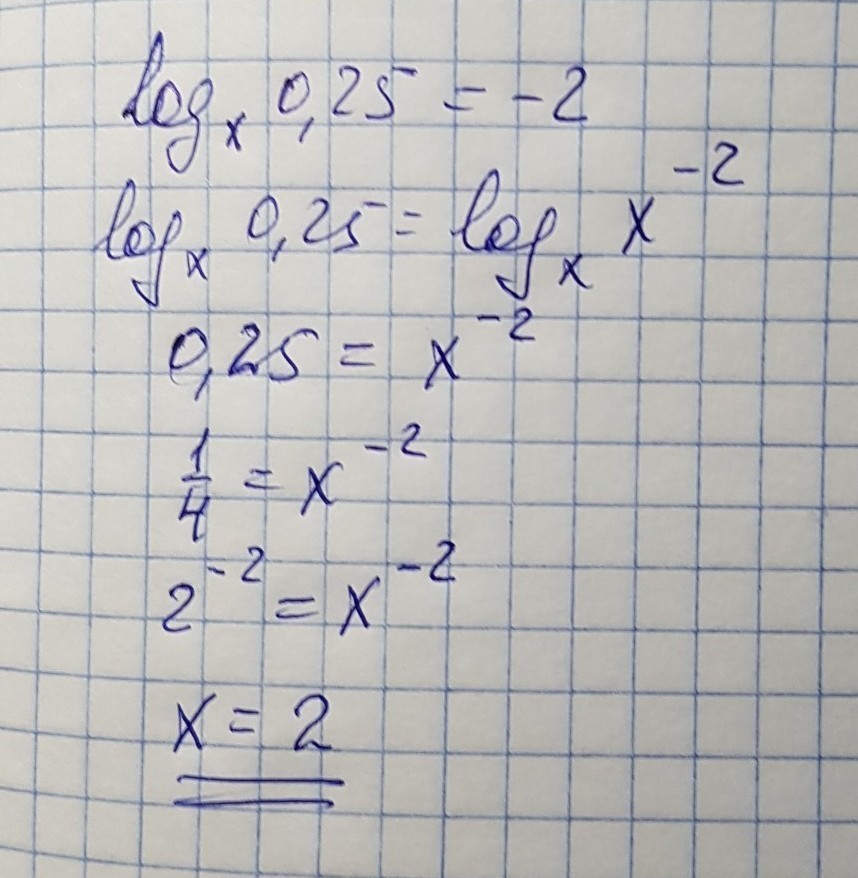 logₓ 0,25 = -2
logₓ 0,25 = logₓ x⁻²
0,25 = x⁻²
1/4 = x⁻²
2⁻² = x⁻²
x = 2